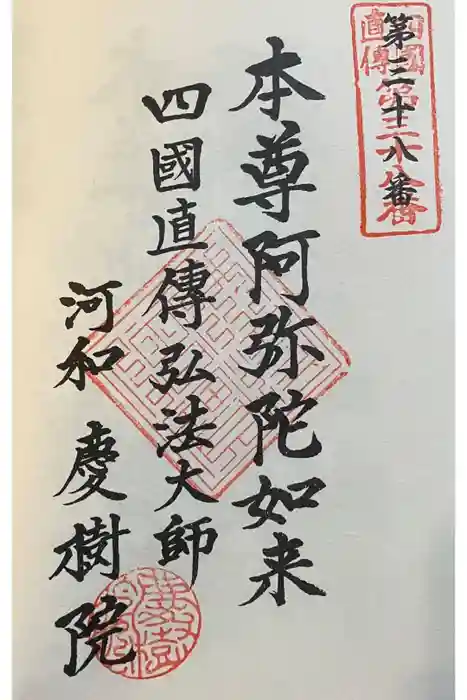 第二十八番
四國
直傳
本尊阿弥陀如来
四國直傳弘法大師
河和 慶樹院